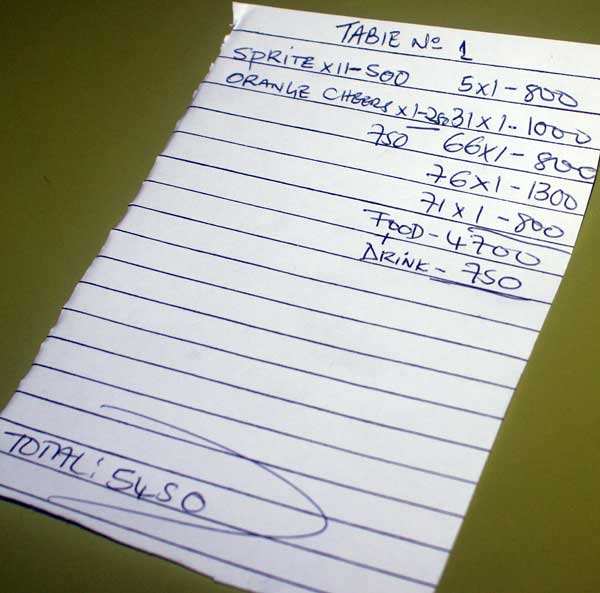 TABLE No 1
SPRITE x11-500 5x1-800
ORANGE CHEERS x1-250 31x1-1000
750 66x1-800
76x1-1300
71x1-800
FOOD-4700
DRINK-750
TOTAL: 5450